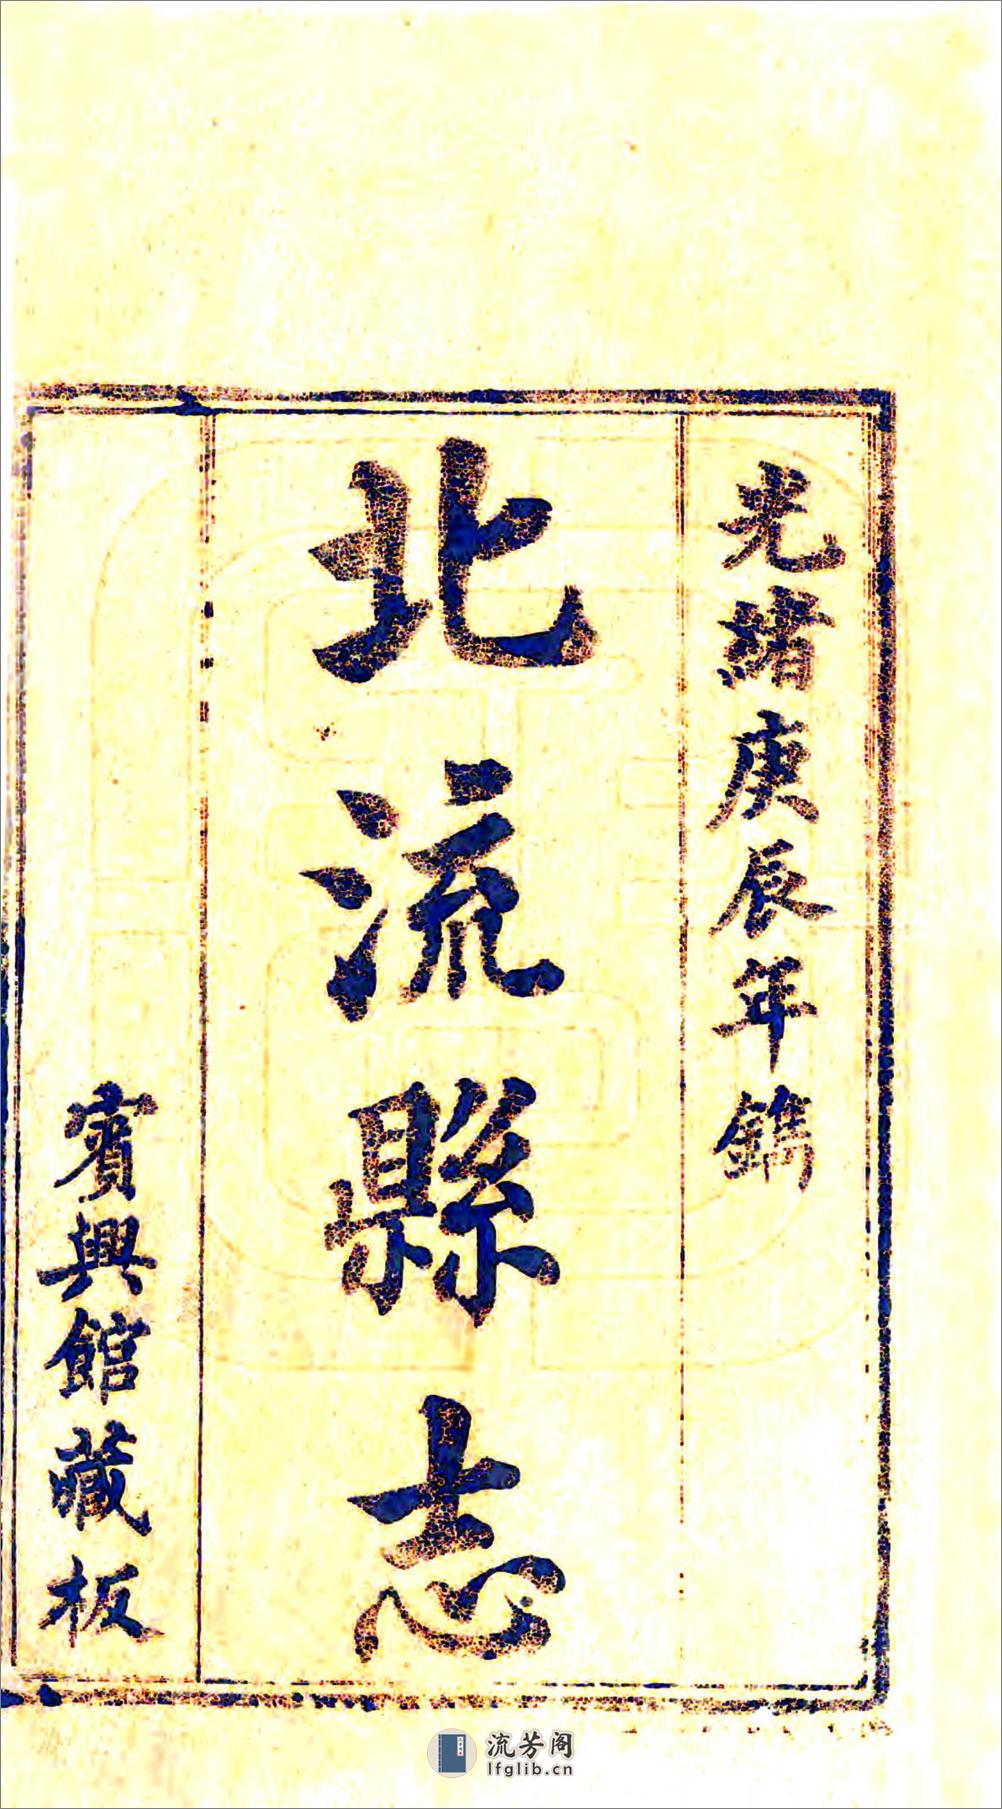 光緒庚辰年鐫
北流縣志
賓興館藏板
流芳阁
lfglib.cn